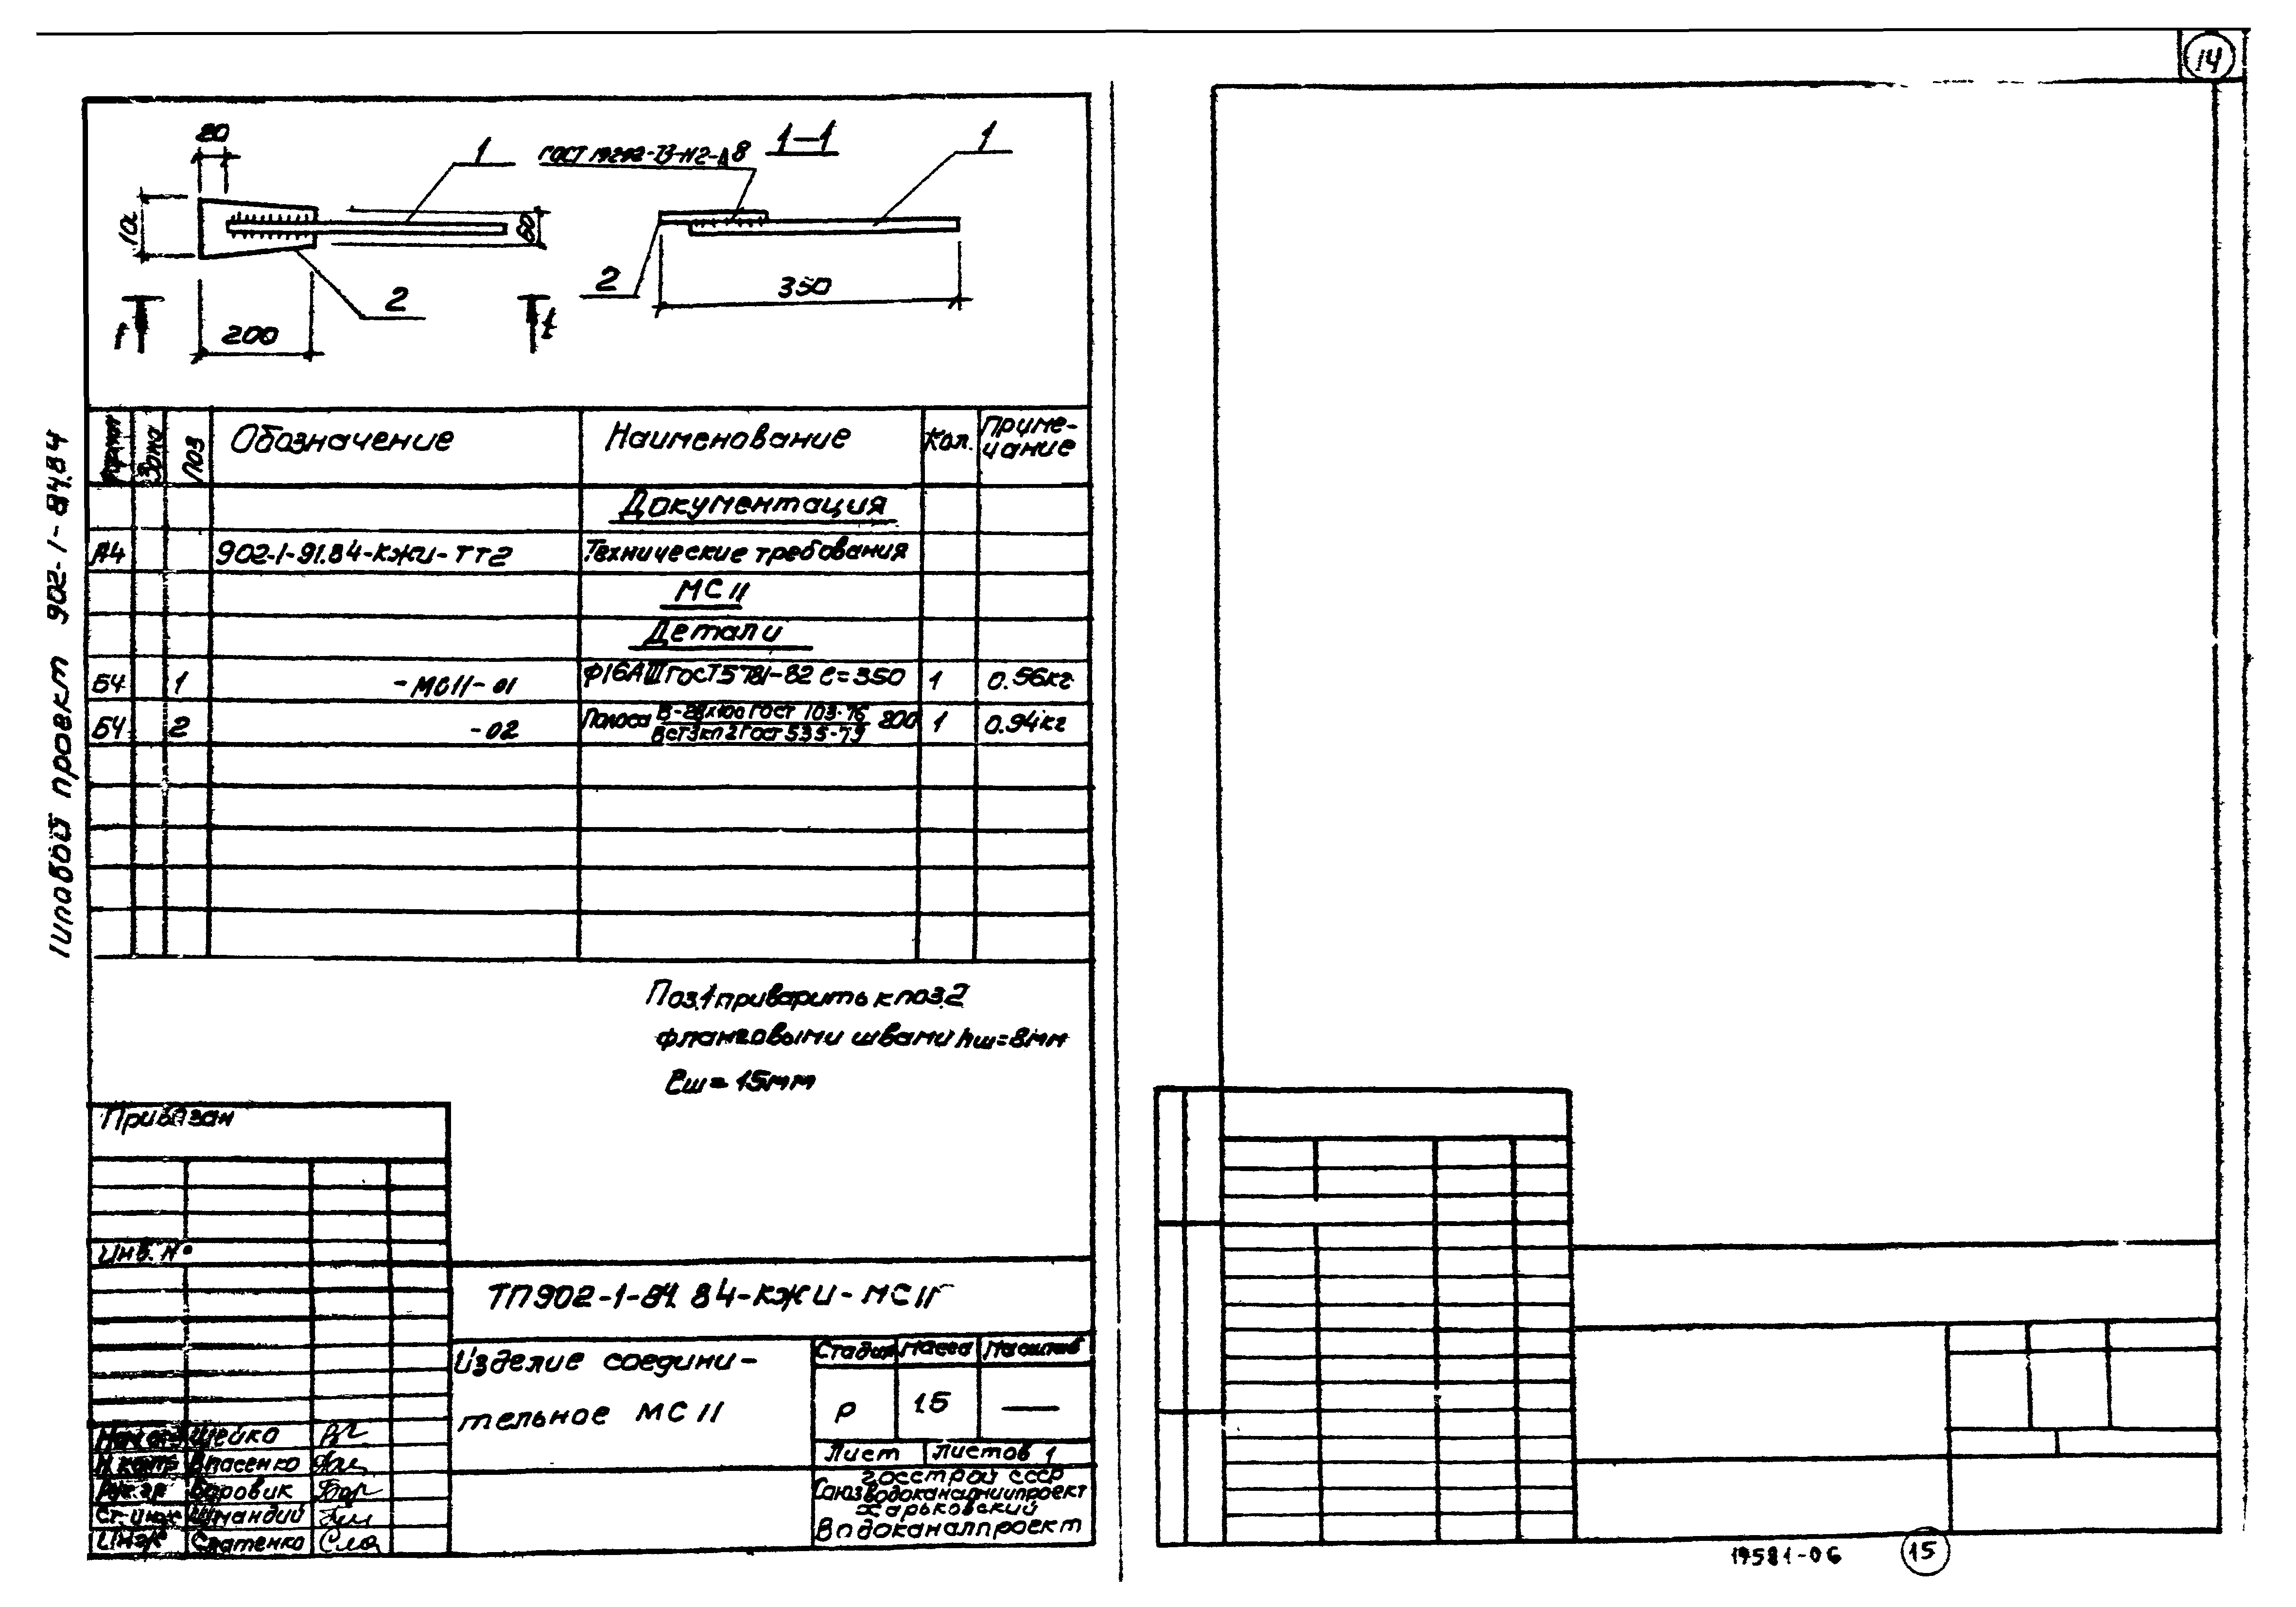 14
20
1
ГОСТ 19292-73-Н2-Д8
1-1
1
60
2
2
350
200
1
1
Типовой проект 902-1-84.84
Формат Зона Поз Обозначение Наименование Кол. Приме-
чание
Документация
А4 902-1-91.84-КЖИ-ТТ2 Технические требования
МС 11
Детали
Б4 1 -МС11-01 Ф16АIII ГОСТ 5781-82 ℓ=350 1 0.56кг
Б4 2 -02 Полоса ГОСТ 103-76 200 1 0.94кг
ВСт3кп2 ГОСТ 535-79
Поз.1 приварить к поз.2
фланговыми швами hш=8мм
ℓш=15мм
Привязан
Инв. №
ТП902-1-84.84-КЖИ-МС11
Изделие соедини-
тельное МС 11
Стадия Масса Масштаб
Р 1.5 —
Лист Листов 1
Госстрой СССР
Союзводоканалниипроект
Харьковский
Водоканалпроект
Нач.отд Шейко
Н.контр Власенко
Рук.гр Боровик
Ст.инж Шмандий
Инж Слатенко
19581-06
15